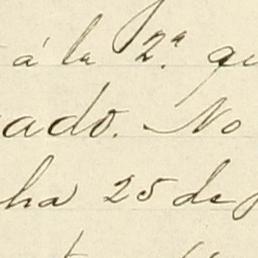 á la 2.ª qu
ado. No
ha 25 de